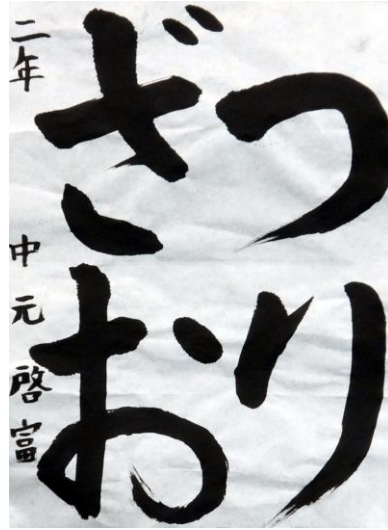 つり
ざお
二年 中元啓富